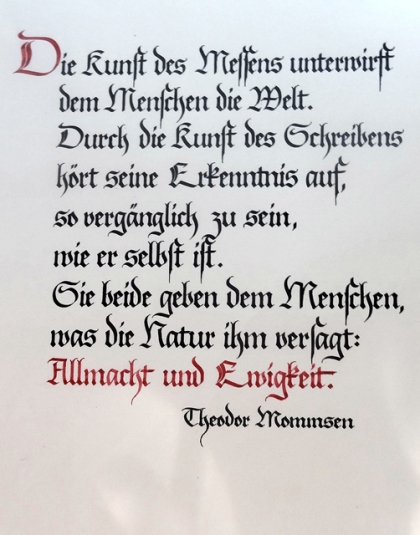 Die Kunſt des Meſſens unterwirft
dem Menſchen die Welt.
Durch die Kunſt des Schreibens
hört seine Erkenntnis auf,
so vergänglich zu sein,
wie er selbſt iſt.
Sie beide geben dem Menſchen,
was die Natur ihm verſagt:
Allmacht und Ewigkeit.
Theodor Mommsen